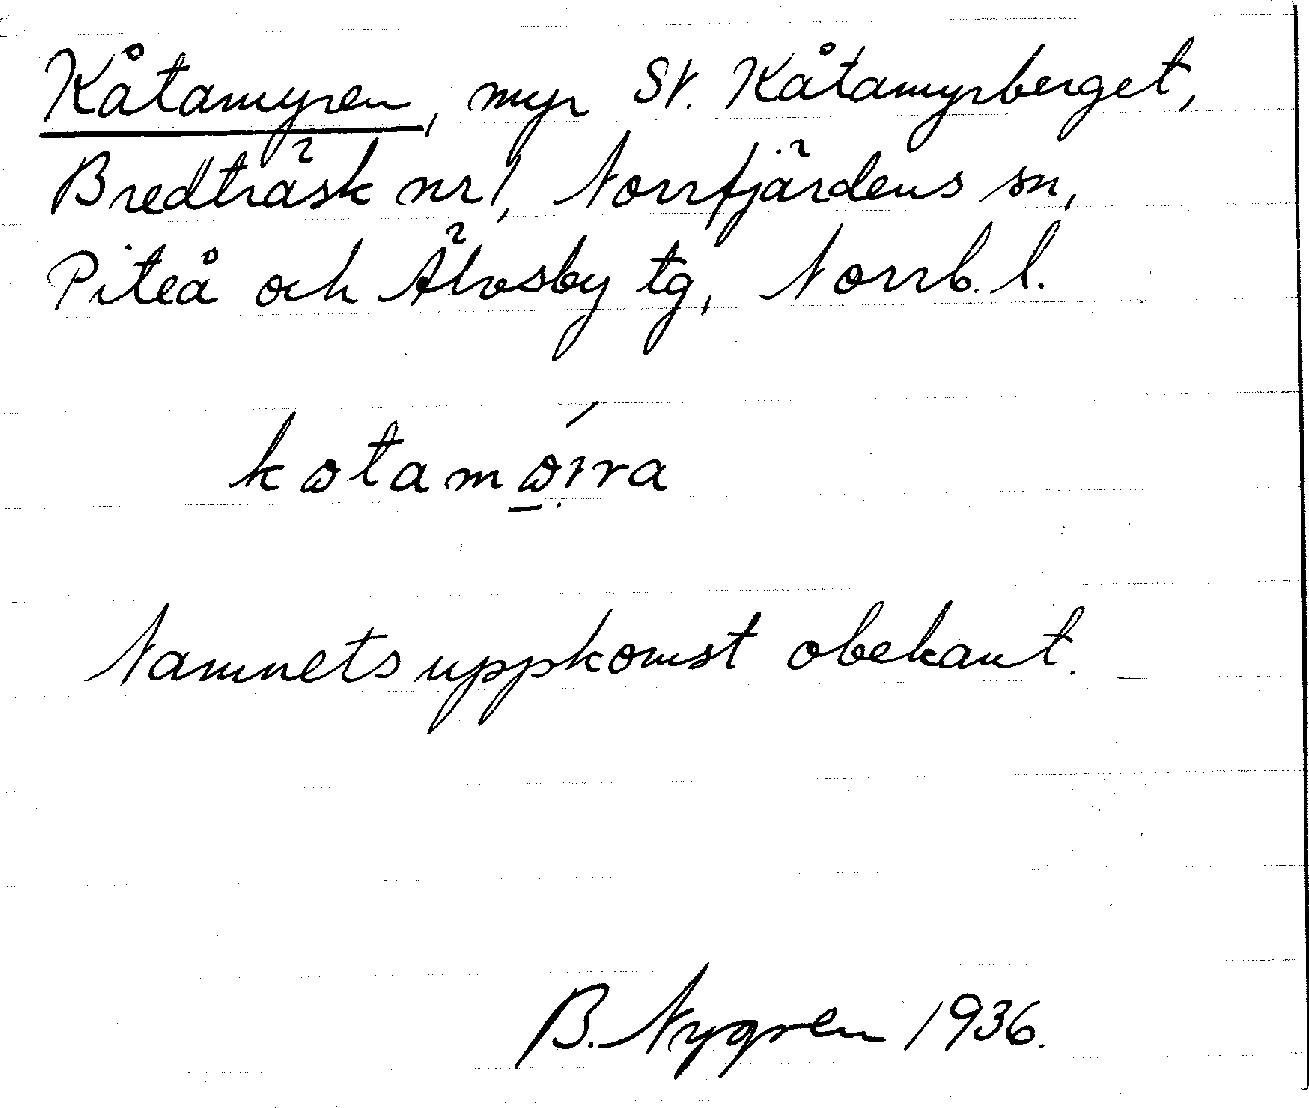 Kåtamyren, myr SV. Kåtamyrberget,
Bredträsk nr 1, Norrfjärdens sn,
Piteå och Älvsby tg, Norrb. l.
Namnets uppkomst obekant.
B. Nygren 1936.